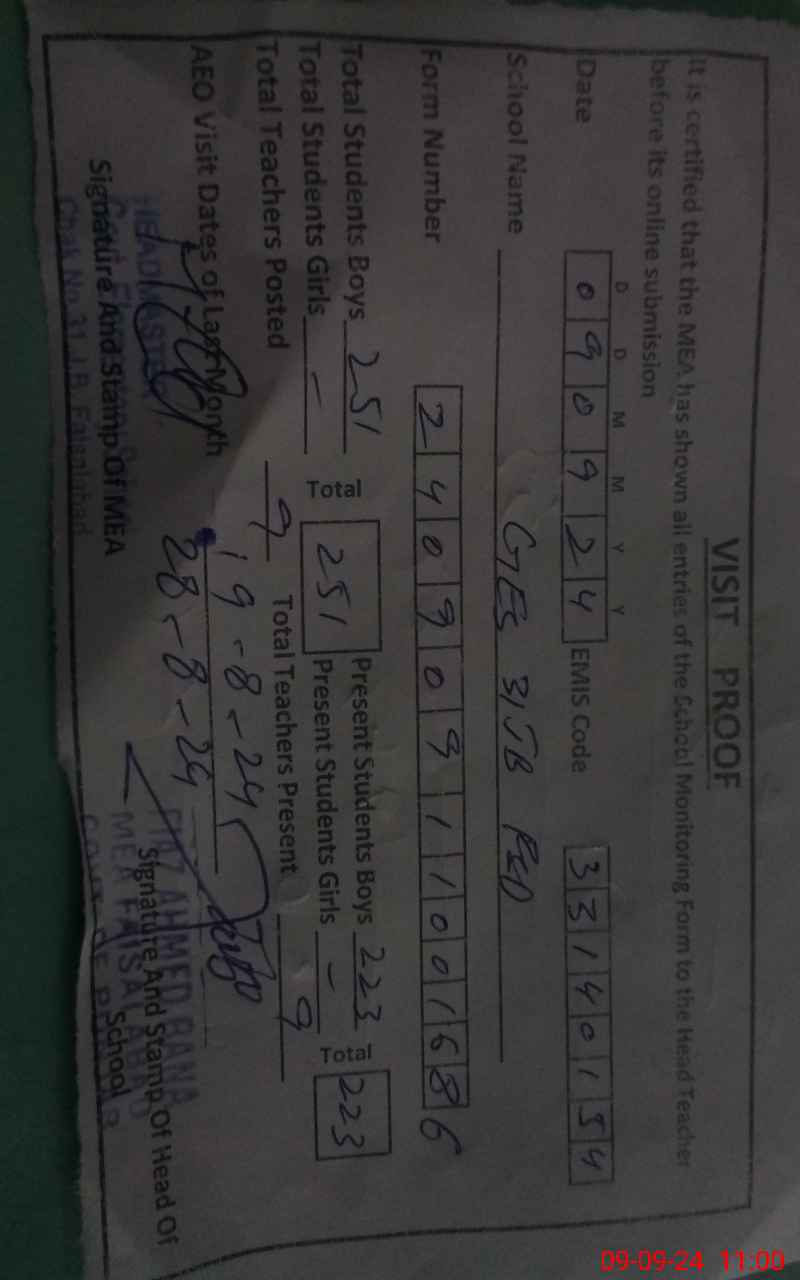 VISIT PROOF
It is certified that the MEA has shown all entries of the School Monitoring Form to the Head Teacher
before its online submission
D D M M Y Y
Date 0 9 0 9 2 4 EMIS Code 3 3 1 4 0 1 5 4
School Name GES 31JB FSD
Form Number 2 4 0 9 0 9 1 1 0 0 1 6 8 6
Total Students Boys 251 Total 251 Present Students Boys 223 Total 223
Total Students Girls - Present Students Girls -
Total Teachers Posted 9 Total Teachers Present 9
AEO Visit Dates of Last Month 19-8-24
28-8-24
HEADMASTER
Chak No.31 J.B. Faisalabad
Signature And Stamp Of MEA
AHMED RANA
MEA FAISALABAD
Signature And Stamp Of Head Of
School
09-09-24 11:00